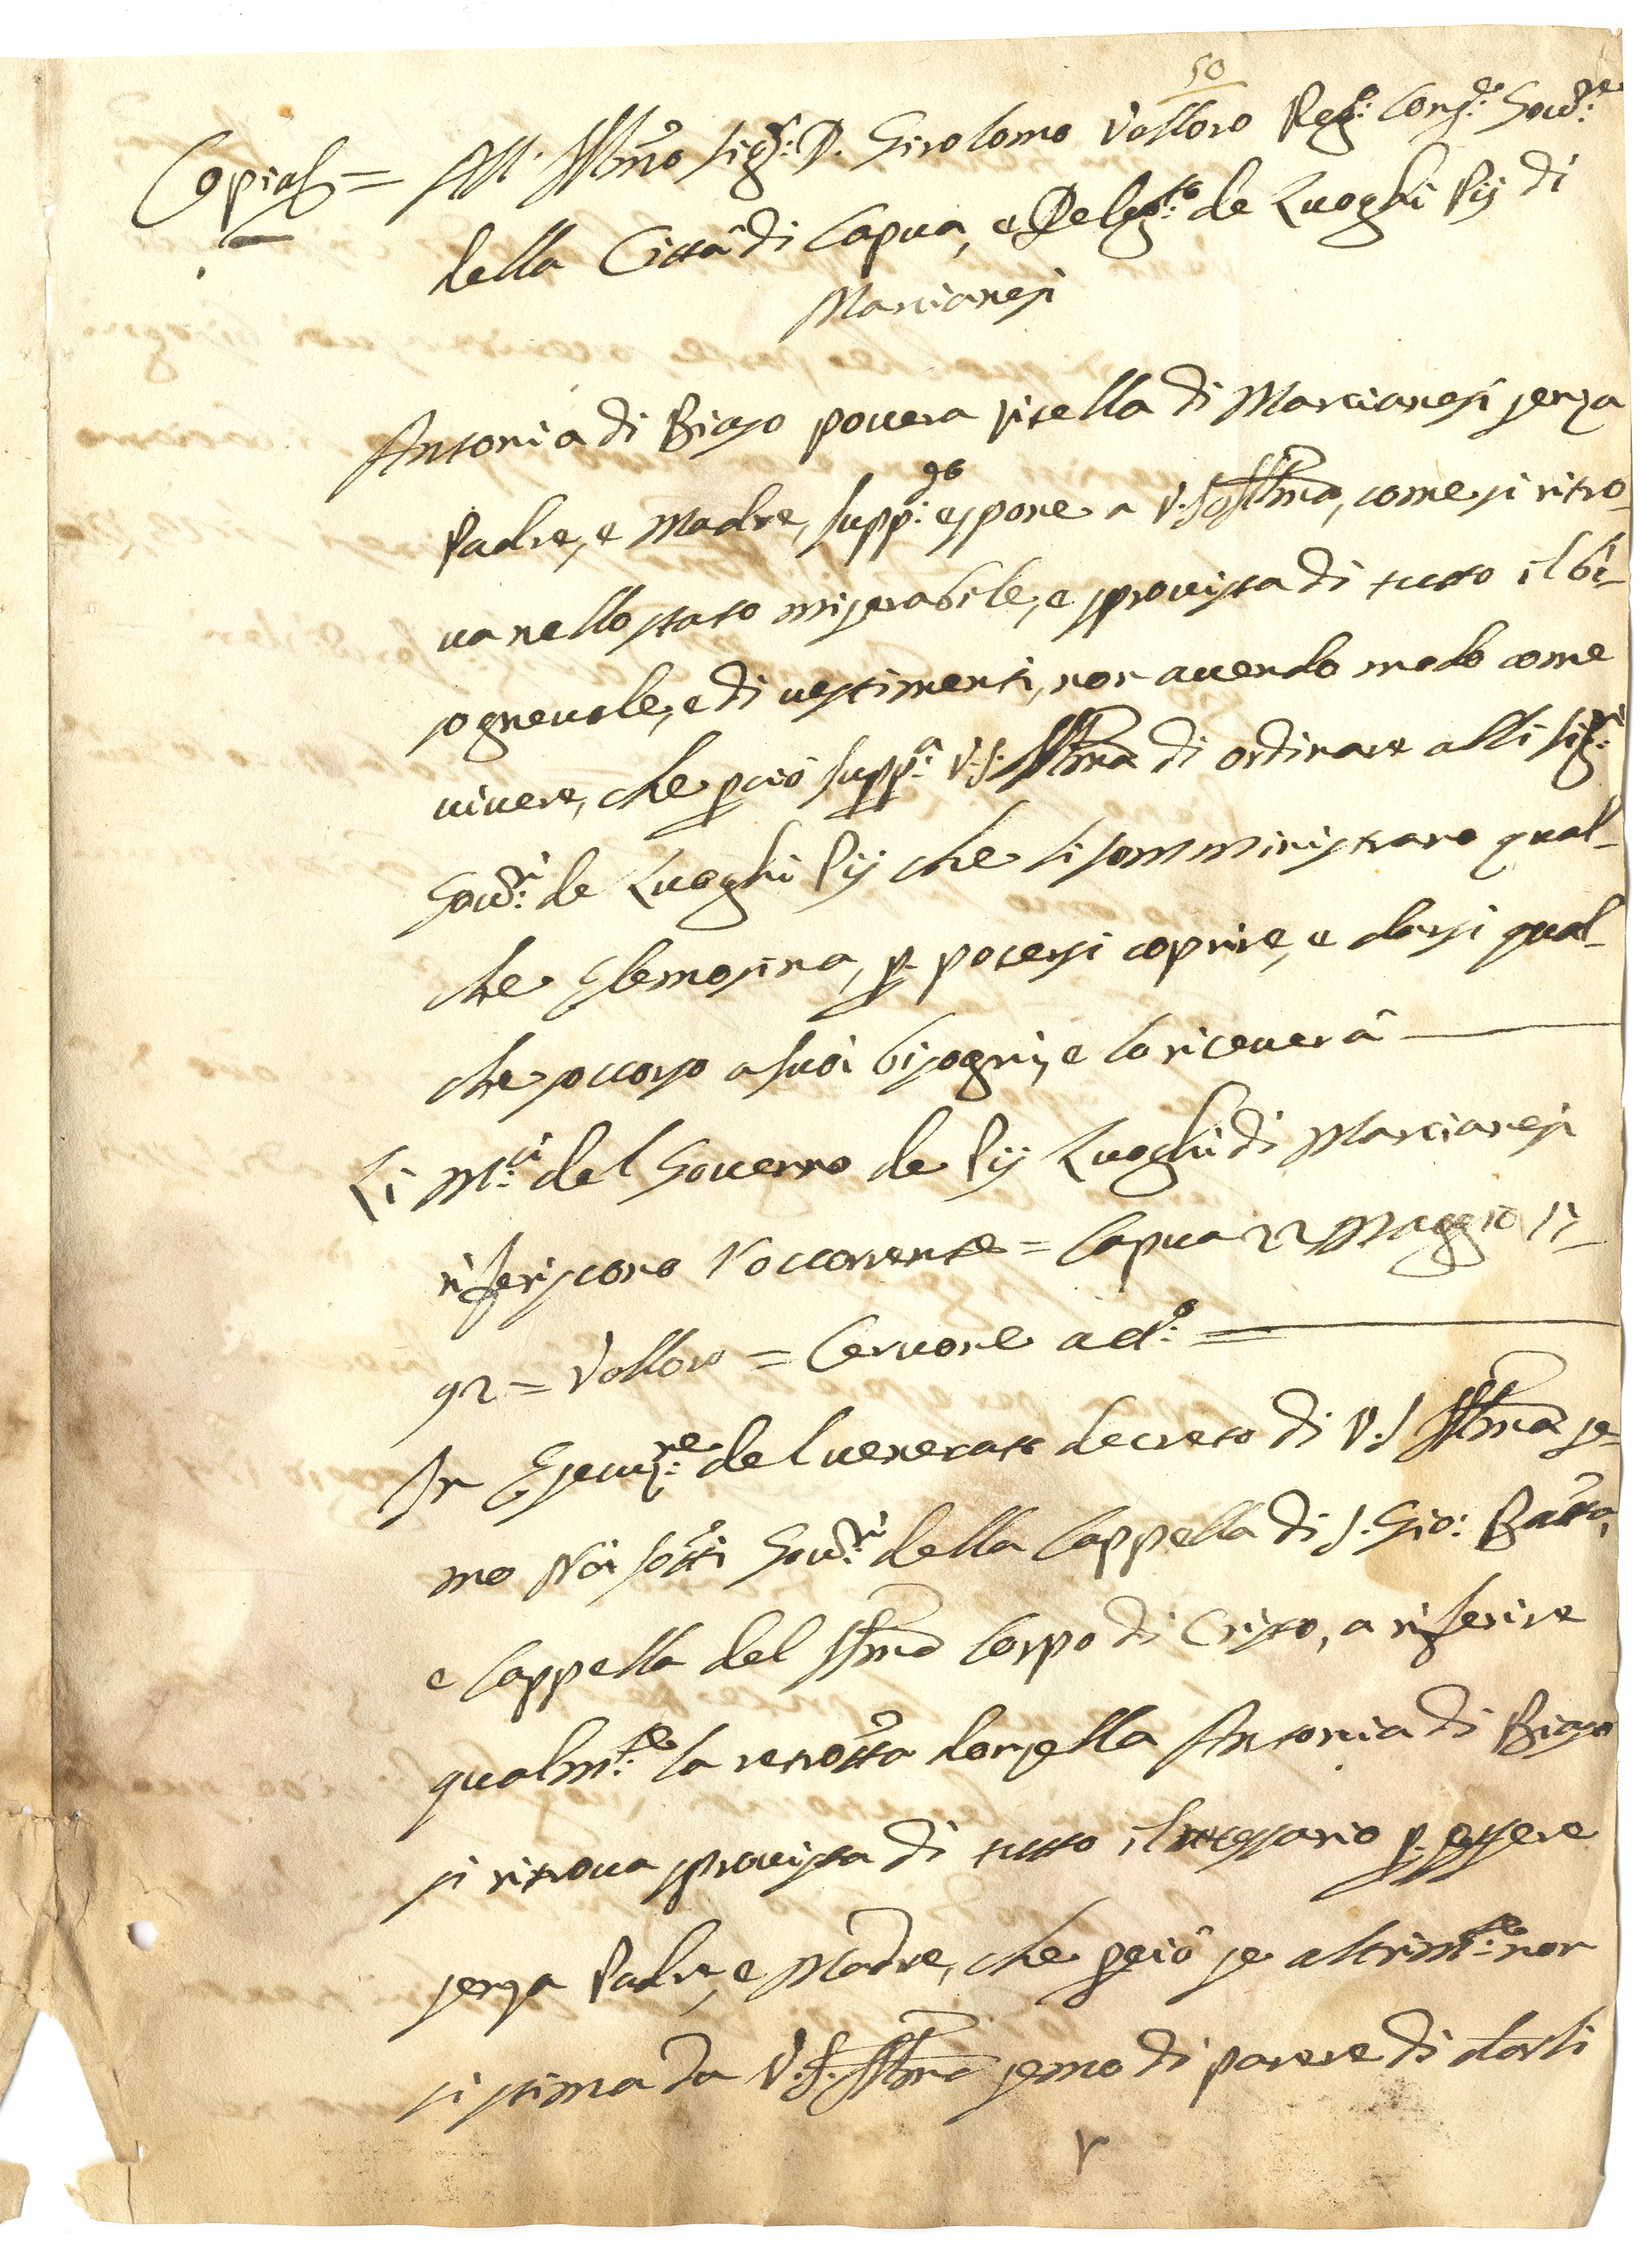 50
Copia = All' Ill̃mo Sig.r D. Girolamo Vollaro Reg.o Cons.re Gov.re
della Città di Capua, e Deleg.to de Luoghi Pij di
Marcianesi
Antonia di Biaso povera zitella di Marcianesi senza
Padre, e Madre, supp.do espone a V.S. Ill̃ma, come si ritro-
va nello stato miserabile, e sprovista di tutto il bi-
sognevole, e di vestimenti, non avendo modo come
vivere, che p̱ciò supp.a V.S. Ill̃ma di ordinare alli Sig.ri
Gov.ri de Luoghi Pij che li somministrano qual-
che Elemosina, p̱ potersi coprire, e darsi qual-
che soccorso a suoi bisogni, e lo riceverà
Li M.ci del Governo de Pij Luoghi di Marcianesi
riferiscono l'occorrente = Capua 22 Maggio 17-
92 = Vollaro = Cervone ad.o =
In Esecuz.ne del venerato decreto di V.S. Ill̃ma se-
mo Noi sott̃i Gov.ri della Cappella di S. Gio: Batt̃a,
e Cappella del SS̃mo Corpo di Cristo, a riferire
qualm.te la retrõtta donzella Antonia di Biaso
si ritrova sprovista di tutto il necessario p̱ essere
senza Padre, e Madre, che p̱ciò se altrim.te non
si stima da V.S. Ill̃ma semo di parere di darli